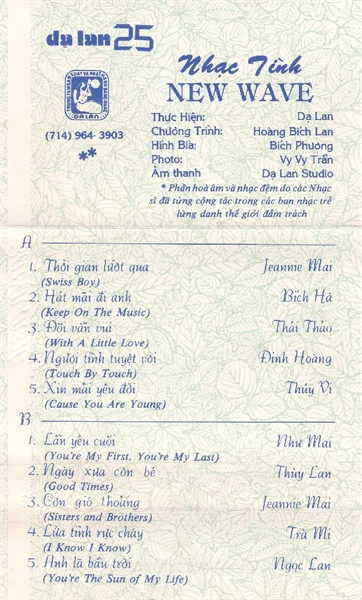 dạ lan 25
Nhạc Tình
NEW WAVE
DẠ LAN
(714) 964-3903
**
Thực Hiện: Dạ Lan
Chương Trình: Hoàng Bích Lan
Hình Bìa: Bích Phương
Photo: Vy Vy Trần
Âm thanh Dạ Lan Studio
* Phần hoà âm và nhạc đệm do các Nhạc
sĩ đã từng cộng tác trong các ban nhạc trẻ
lừng danh thế giới đảm trách
A
1. Thời gian lướt qua Jeannie Mai
(Swiss Boy)
2. Hát mãi đi anh Bích Hà
(Keep On The Music)
3. Đời vẫn vui Thái Thảo
(With A Little Love)
4. Người tình tuyệt vời Đinh Hoàng
(Touch By Touch)
5. Xin mãi yêu đời Thúy Vi
(Cause You Are Young)
B
1. Lần yêu cuối Như Mai
(You're My First, You're My Last)
2. Ngày xưa còn bé Thùy Lan
(Good Times)
3. Cơn gió thoảng Jeannie Mai
(Sisters and Brothers)
4. Lửa tình rực cháy Trà Mi
(I Know I Know)
5. Anh là bầu trời Ngọc Lan
(You're The Sun of My Life)